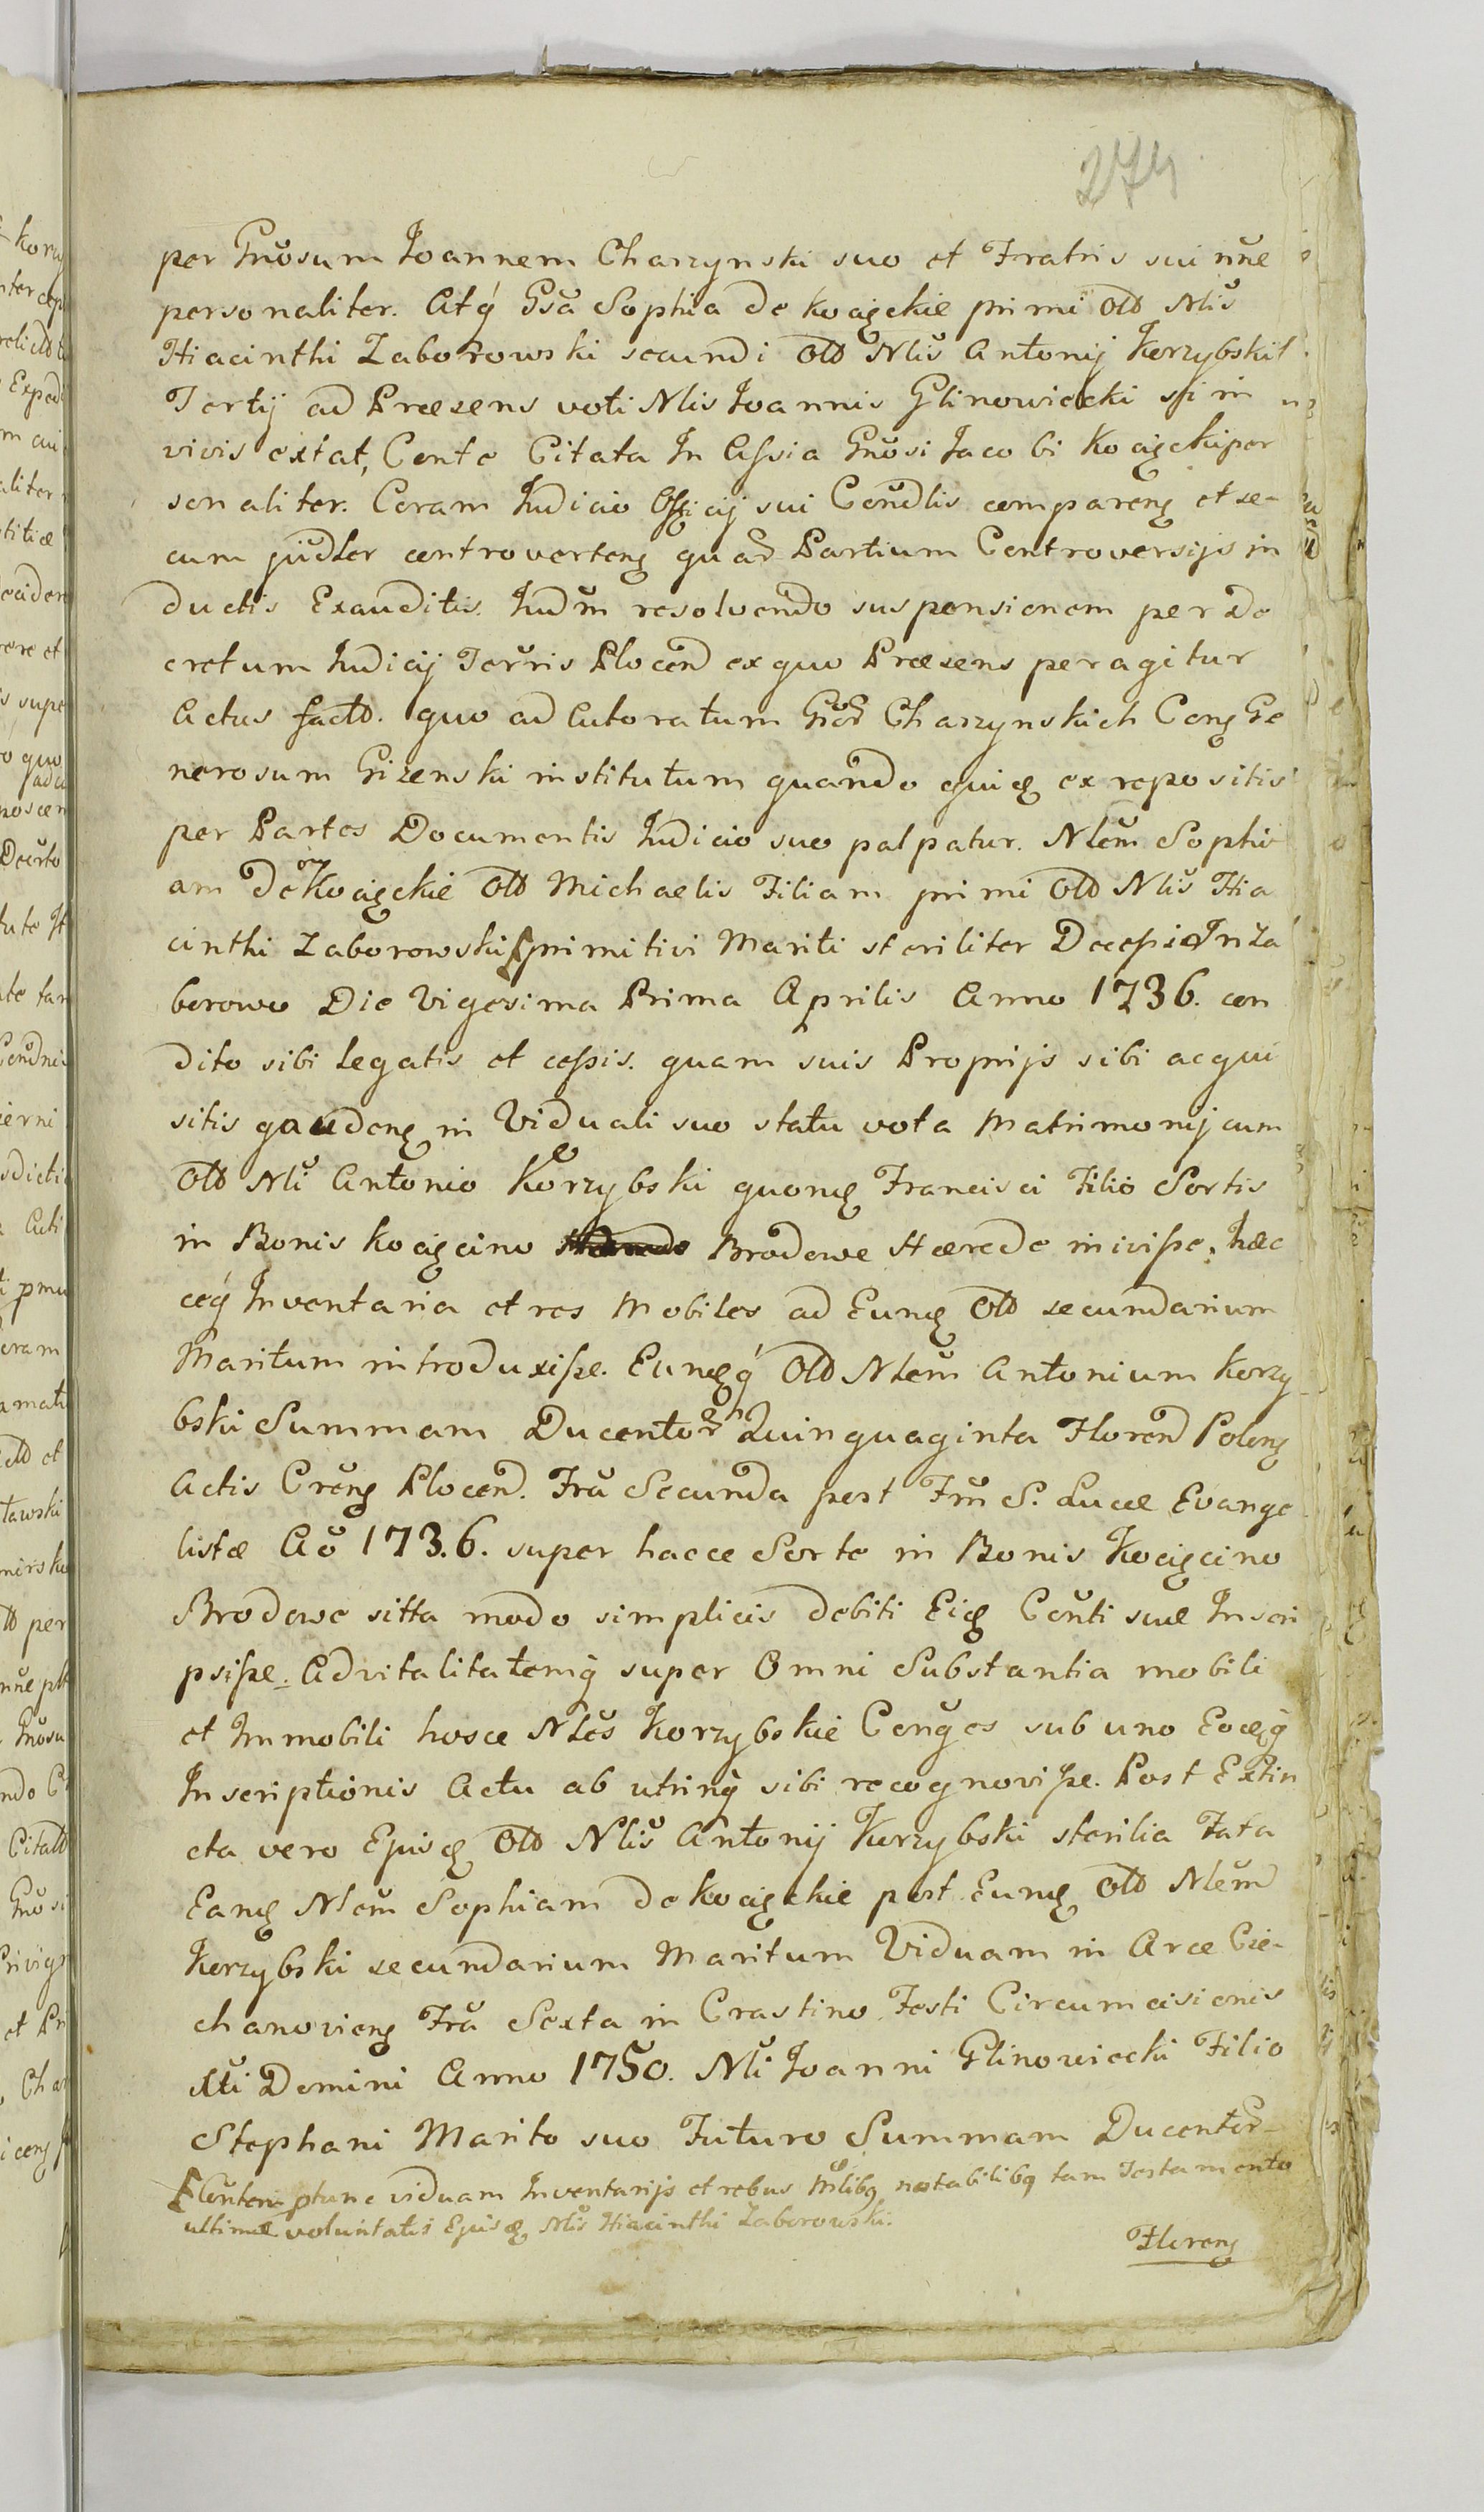 274
per Gnosum Joannem Charzynski suo et Fratris sui nne
personaliter. Atq̃ Gsa Sophia de Kocięckie primi olo Nlis
Hiacinthi Zaborowski secundi olo Nlis Antonij Korzybski et
Tertij ad Præsens voti Nlis Joannis Glinowiecki si in
vivis extat, Conte Citata In Assia Gnosi Jacobi Kocięcki per
sonaliter. Coram Judicio Officij sui Condlis comparen et se-
cum judler controverten quar Partium Controversijs in
ductis Exauditis. Judm resolvendo suspensionem per De
cretum Judicij Terris Plocen ex quo Præsens peragitur
Actus facto. quo ad Autoratum Gror Charzynskich Con Ge
nerosum Gizenski institutum quando quidem ex repositis
per Partes Documentis Judicio suo palpatur. Nlem Sophi
am de Kocięckie olo Michaelis Filiam primi olo Nlis Hia
cinthi Zaborowski primitivi Mariti steriliter Decessi In Za
borowo Die Vigesima Prima Aprilis Anno 1736. con
dito sibi legatis et cessis. quam suis Proprijs sibi acqui
sitis gauden in Viduali suo statu vota Matrimonij cum
olo Nli Antonio Korzybski quondam Francisci Filio Sortis
in Bonis Kocięcino Brodowe Hærede inivisse, hæc
ceq̃ Inventaria et res Mobiles ad Eundem olo secundarium
Maritum introduxisse. Eundemq̃ olo Nlem Antonium Korzy
bski Summam Ducentor Quinquaginta Floren Polon
Actis Cren Plocen. Fra Secunda post Fm S. Lucæ Evange
listæ Ao 1736. super hacce Sorte in Bonis Kocięcino
Brodowe sitta modo simplicis debiti Eidem Conti suæ Inscri
psisse. Advitalitatemq̃ super Omni Substantia mobili
et Immobili hosce Nles Korzybskie Conges sub uno Eodemq̃
Inscriptionis Actu ab utrinq̃ sibi recognovisse. Post Extin
cta vero Ejusdem olo Nlis Antonij Korzybski sterilia Fata
Eandem Nlem Sophiam de Kocięckie post Eundem olo Nlem
Korzybski secundarium Maritum Viduam in Arce Cie-
chanovien Fra Sexta in Crastino Festi Circumcisionis
Xti Domini Anno 1750. Nli Joanni Glinowiecki Filio
Stephani Marito suo Futuro Summam Ducentor
ptunc viduam Inventarijs et rebus Mlibq notabilibq tam Testamento
ultimæ voluntatis Ejusdem Nlis Hiacinthi Zaborowski.
Floren